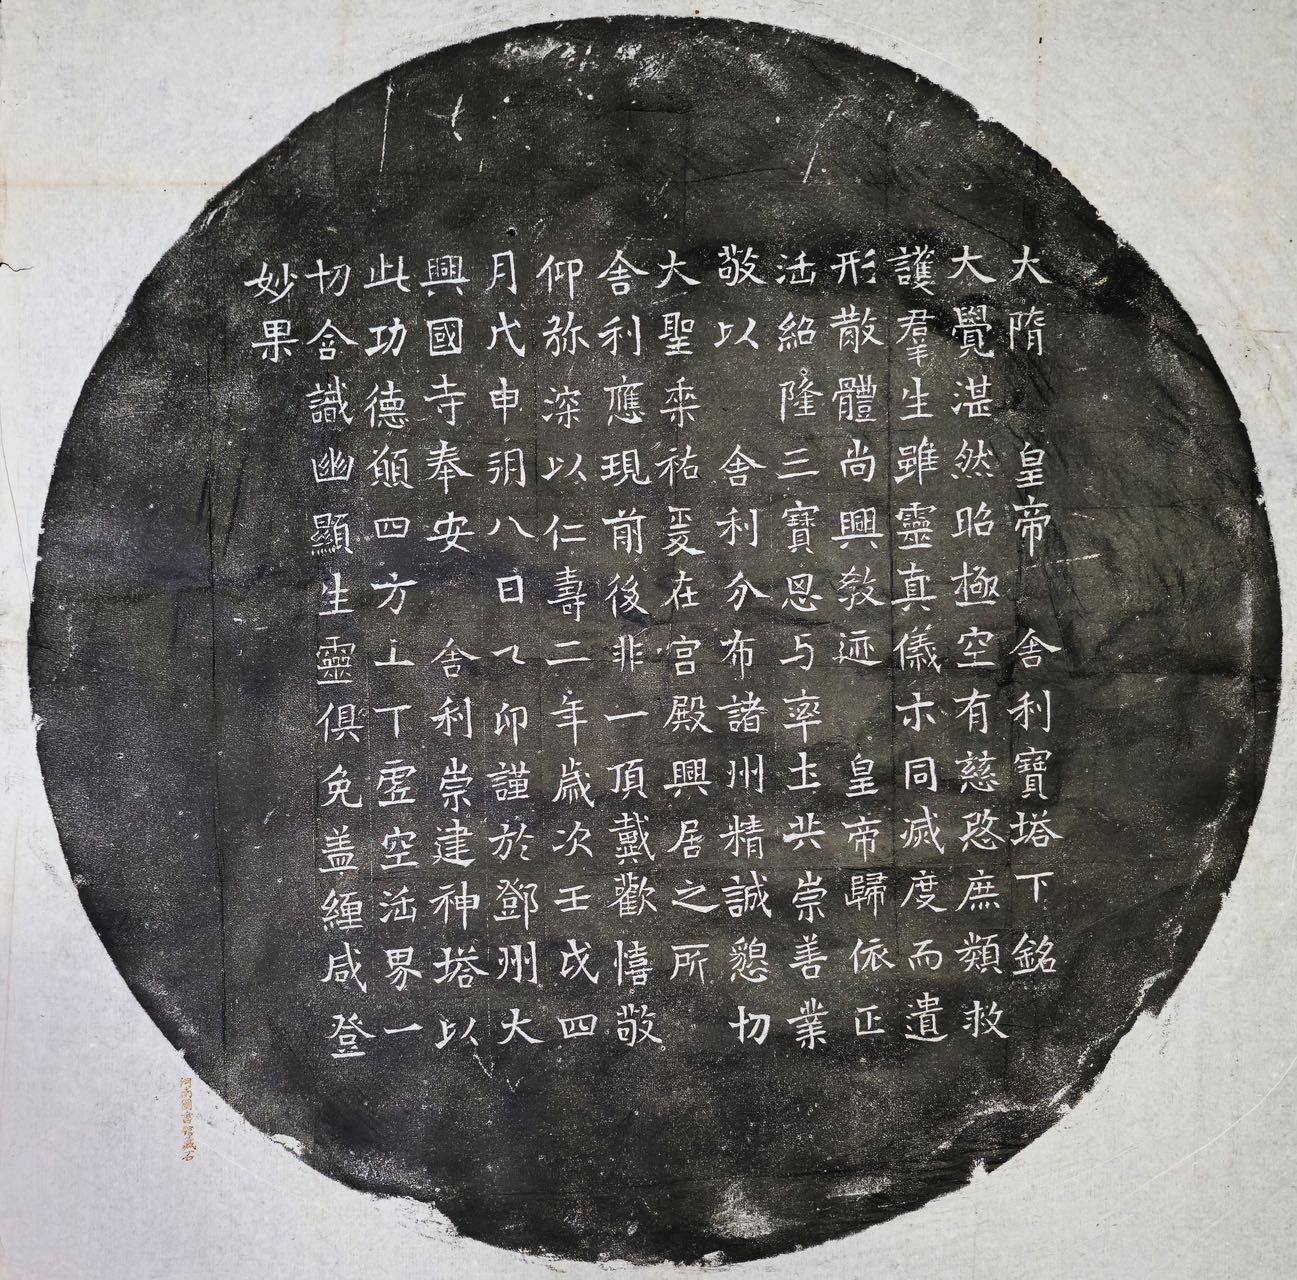 大隋 皇帝 舍利寶塔下銘
大覺湛然昭極空有慈愍庶類救
護羣生雖靈真儀示同滅度而遺
形散體尚興教迹 皇帝歸依正
法紹隆三寶思与率土共崇善業
敬以 舍利分布諸州精誠懇切
大聖垂祐爰在宮殿興居之所
舍利應現前後非一頂戴歡憘敬
仰弥深以仁壽二年歲次壬戌四
月戊申朔八日乙卯謹於鄧州大
興國寺奉安 舍利崇建神塔以
此功德願四方上下虛空法界一
切含識幽顯生靈俱免盖纏咸登
妙果
河南圖書館藏石